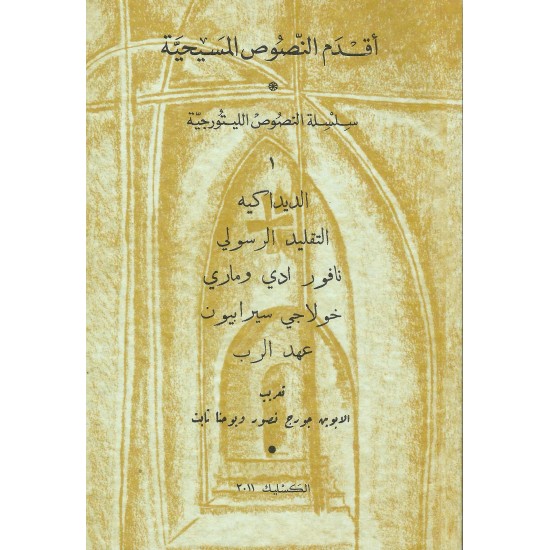 أقدم النصوص المسيحيّة
سلسلة النصوص الليتورجيّة
١
الديداكيه
التقليد الرسولي
نافور ادي وماري
خولاجي سيرابيون
عهد الرب
تعريب
الابوين جورج نصور ويوحنا تابت
الكسليك ٢٠١١